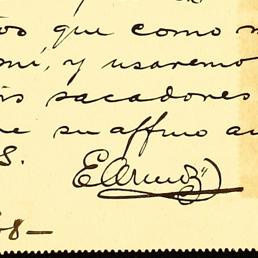 os que como
mí, y usaremo
is sacadores
e su affmo a
S.
EArmoz
08-